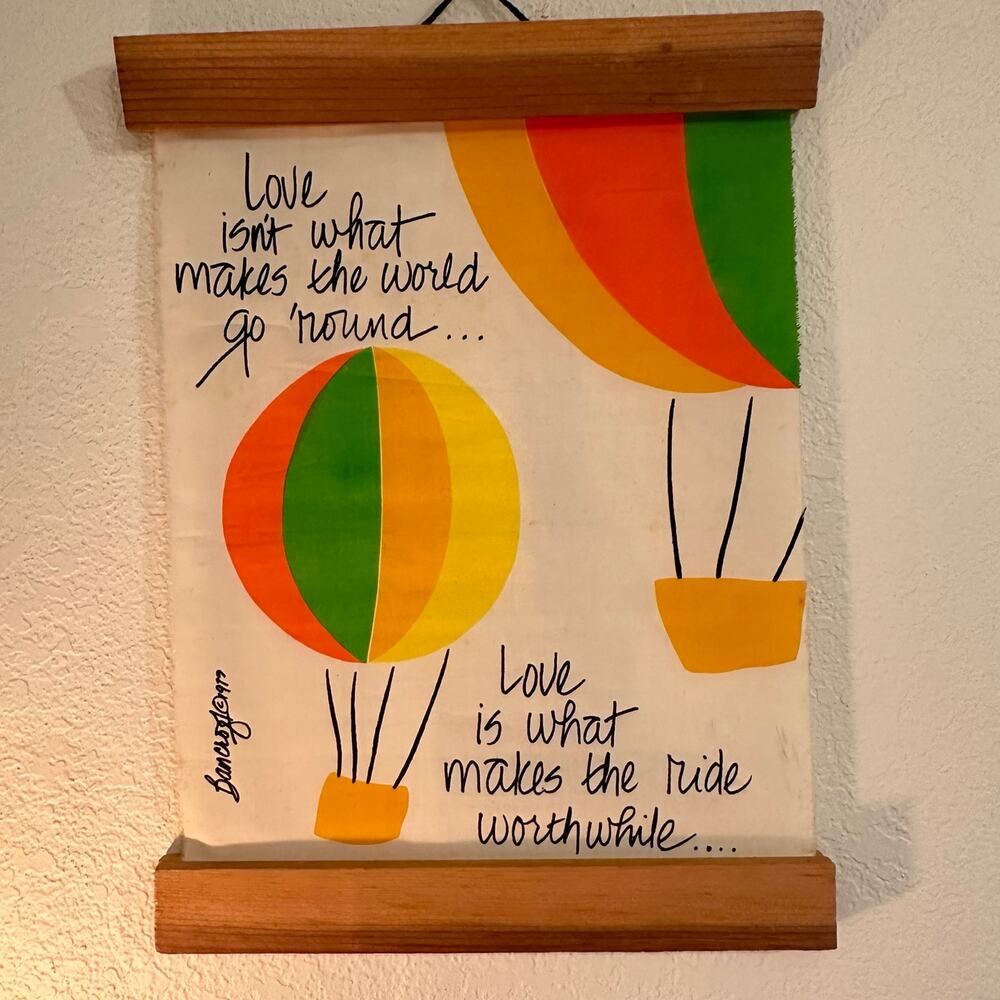 Love
isn't what
makes the world
go 'round...
Love
is what
makes the ride
worthwhile....
Bancroft ©1973